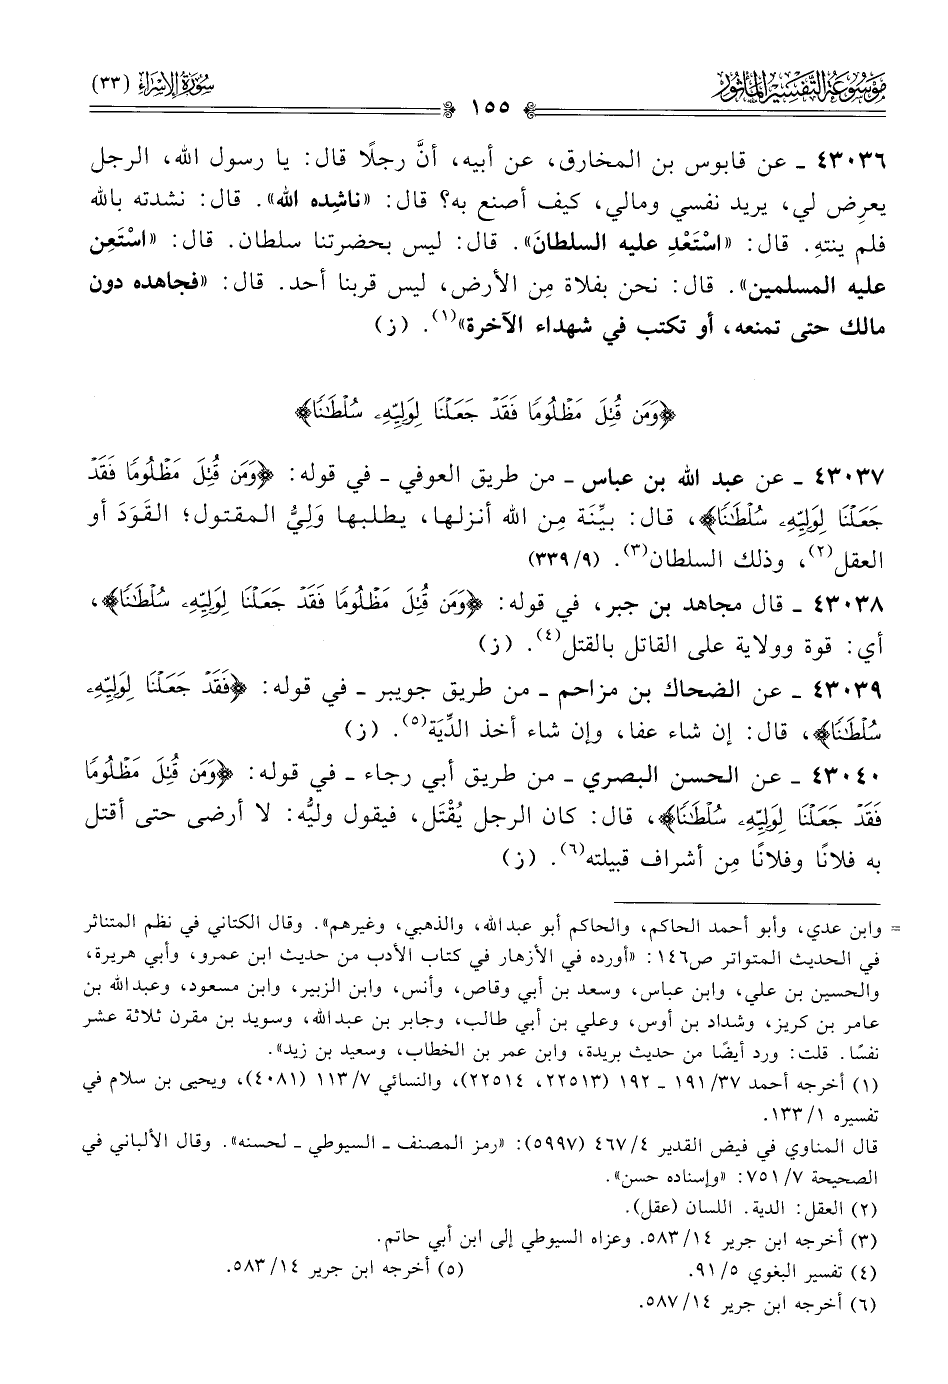 موسوعة التفسير المأثور
سورة الإسراء (٣٣)
١٥٥
٤٣٠٣٦ ـ عن قابوس بن المخارق، عن أبيه، أنَّ رجلًا قال: يا رسول الله، الرجل
يعرِض لي، يريد نفسي ومالي، كيف أصنع به؟ قال: «ناشِده الله». قال: نشدته بالله
فلم ينتهِ. قال: «اسْتَعْدِ عليه السلطانَ». قال: ليس بحضرتنا سلطان. قال: «اسْتَعِن
عليه المسلمين». قال: نحن بفلاة مِن الأرض، ليس قربنا أحد. قال: «فجاهده دون
مالك حتى تمنعه، أو تكتب في شهداء الآخرة»(١). (ز)
﴿وَمَن قُتِلَ مَظْلُومًا فَقَدْ جَعَلْنَا لِوَلِيِّهِۦ سُلْطَٰنًا﴾
٤٣٠٣٧ ـ عن عبد الله بن عباس ـ من طريق العوفي ـ في قوله: ﴿وَمَن قُتِلَ مَظْلُومًا فَقَدْ
جَعَلْنَا لِوَلِيِّهِۦ سُلْطَٰنًا﴾، قال: بيِّنَة مِن الله أنزلها، يطلبها وَلِيُّ المقتول؛ القَوَدَ أو
العقل(٢)، وذلك السلطان(٣). (٩/ ٣٣٩)
٤٣٠٣٨ ـ قال مجاهد بن جبر، في قوله: ﴿وَمَن قُتِلَ مَظْلُومًا فَقَدْ جَعَلْنَا لِوَلِيِّهِۦ سُلْطَٰنًا﴾،
أي: قوة وولاية على القاتل بالقتل(٤). (ز)
٤٣٠٣٩ ـ عن الضحاك بن مزاحم ـ من طريق جويبر ـ في قوله: ﴿فَقَدْ جَعَلْنَا لِوَلِيِّهِۦ
سُلْطَٰنًا﴾، قال: إن شاء عفا، وإن شاء أخذ الدِّيَة(٥). (ز)
٤٣٠٤٠ ـ عن الحسن البصري ـ من طريق أبي رجاء ـ في قوله: ﴿وَمَن قُتِلَ مَظْلُومًا
فَقَدْ جَعَلْنَا لِوَلِيِّهِۦ سُلْطَٰنًا﴾، قال: كان الرجل يُقْتَل، فيقول وليُّه: لا أرضى حتى أقتل
به فلانًا وفلانًا مِن أشراف قبيلته(٦). (ز)
= وابن عدي، وأبو أحمد الحاكم، والحاكم أبو عبدالله، والذهبي، وغيرهم». وقال الكتاني في نظم المتناثر
في الحديث المتواتر ص١٤٦: «أورده في الأزهار في كتاب الأدب من حديث ابن عمرو، وأبي هريرة،
والحسين بن علي، وابن عباس، وسعد بن أبي وقاص، وأنس، وابن الزبير، وابن مسعود، وعبدالله بن
عامر بن كريز، وشداد بن أوس، وعلي بن أبي طالب، وجابر بن عبدالله، وسويد بن مقرن ثلاثة عشر
نفسًا. قلت: ورد أيضًا من حديث بريدة، وابن عمر بن الخطاب، وسعيد بن زيد».
(١) أخرجه أحمد ٣٧/ ١٩١ ـ ١٩٢ (٢٢٥١٣، ٢٢٥١٤)، والنسائي ٧/ ١١٣ (٤٠٨١)، ويحيى بن سلام في
تفسيره ١/ ١٣٣.
قال المناوي في فيض القدير ٤/ ٤٦٧ (٥٩٩٧): «رمز المصنف ـ السيوطي ـ لحسنه». وقال الألباني في
الصحيحة ٧/ ٧٥١: «وإسناده حسن».
(٢) العقل: الدية. اللسان (عقل).
(٣) أخرجه ابن جرير ١٤/ ٥٨٣. وعزاه السيوطي إلى ابن أبي حاتم.
(٤) تفسير البغوي ٥/ ٩١. (٥) أخرجه ابن جرير ١٤/ ٥٨٣.
(٦) أخرجه ابن جرير ١٤/ ٥٨٧.